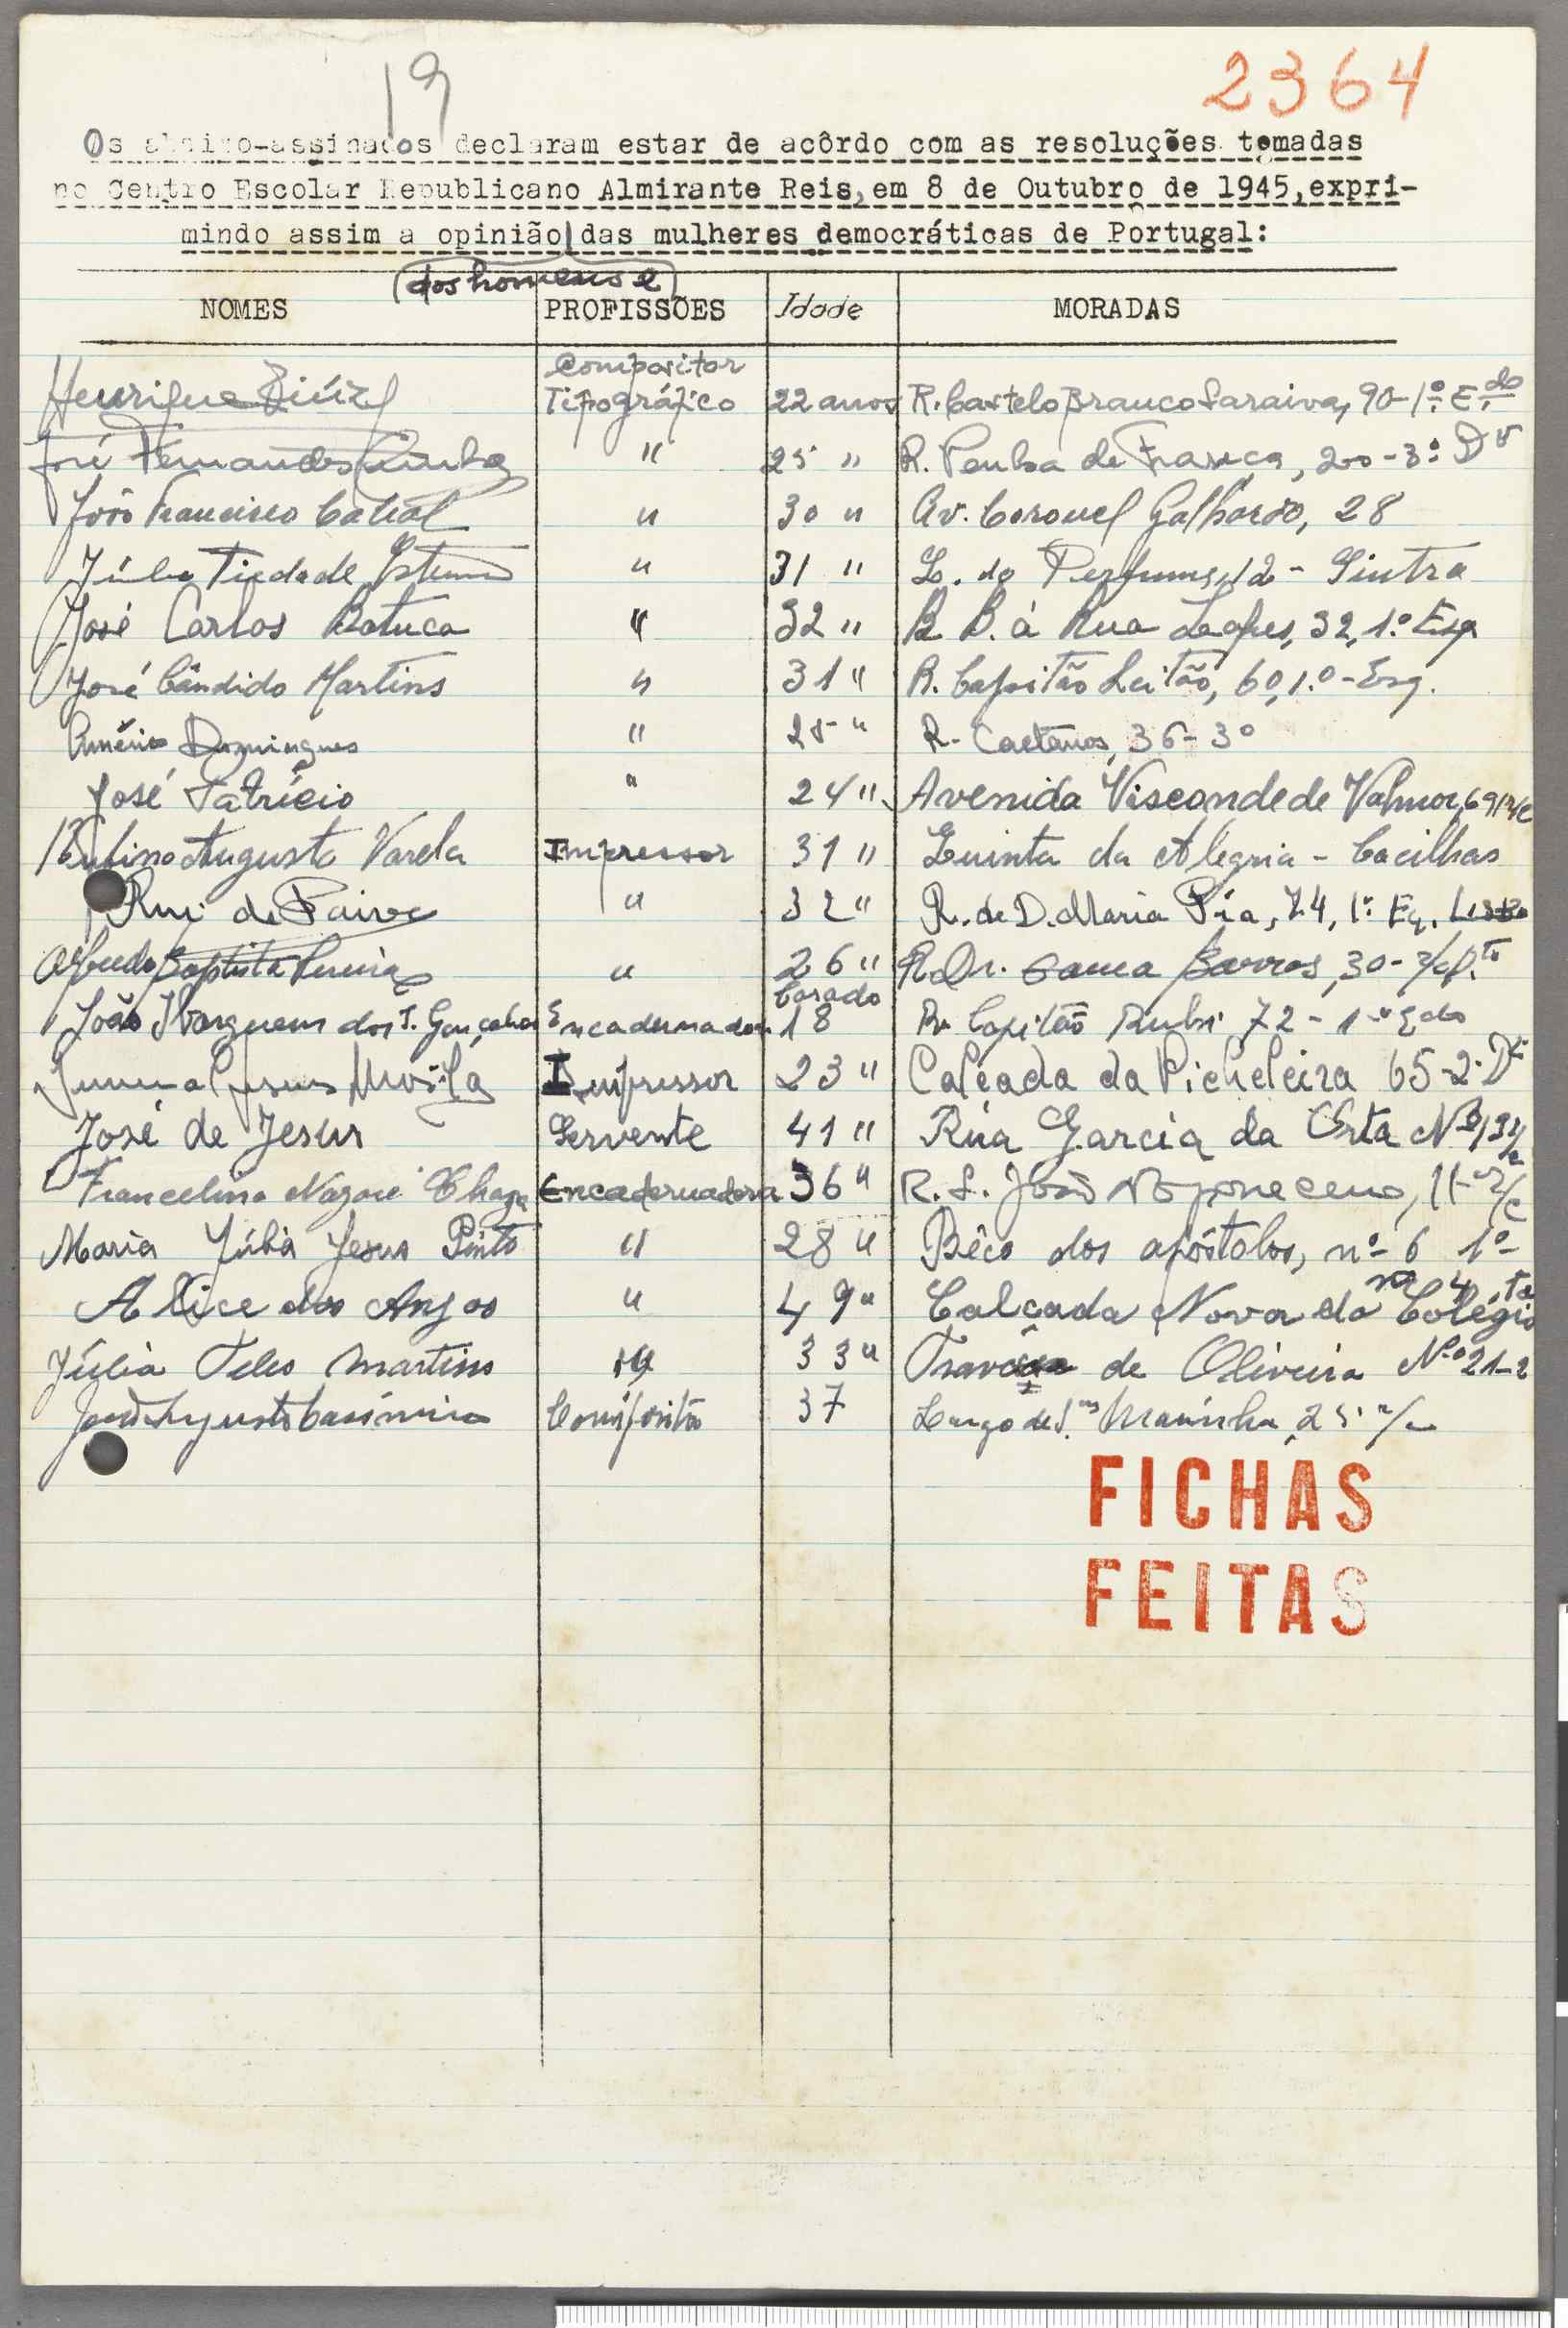 19
2364
Os abaixo-assinados declaram estar de acôrdo com as resoluções tomadas
no Centro Escolar Republicano Almirante Reis, em 8 de Outubro de 1945, expri-
mindo assim a opinião das mulheres democráticas de Portugal:
dos homens e
NOMES PROFISSÕES Idade MORADAS
Compositor
Henrique Tipográfico 22 anos R. Castelo Branco Saraiva, 90-1º Edo
José Fernandes Cunha " 25 " R. Penha de França, 200-3º Dº
João Francisco Cabral " 30 " Av. Coronel Galhardo, 28
Júlio Piedade " 31 " L. do 12 - Sintra
José Carlos Batuca " 32 " R. B. à Rua Lopes, 32, 1.º Esq
José Cândido Martins " 31 " R. Capitão Leitão, 60, 1.º-Esq.
Américo Domingues " 25 " R. Caetanos, 36-3º
José Patrício " 24 " Avenida Visconde de Valmor, 69 r/c
Rufino Augusto Varela Impressor 31 " Quinta da Alegria - Cacilhas
Rui de Paiva " 32 " R. de D. Maria Pia, 74, 1º Eq. Lisboa
Alfredo Baptista Pereira " 26 " R. Dr. Gama Barros, 30-r/c D.to
Casado
João dos S. Gonçalves Encadernador 18 R. Capitão Rubi 72-1º Edo
Jesus Impressor 23 " Calçada da Picheleira 65-2º Dt
José de Jesus Servente 41 " Rua Garcia da Orta Nº
Francelina Nazaré Chaga Encadernadora 36 " R. S. João Nepomeceno, 11-r/c
Maria Júlia Jesus Pinto " 28 " Bêco dos apóstolos, nº 6 1º
nº 4,
Alice dos Anjos " 49 " Calçada Nova do Colégio
Júlia Teles Martins " 33 " Travessa de Oliveira N.º 21-2
José Augusto Casimiro Compositor 37 Largo de S. Marinha, 25 r/c
FICHAS
FEITAS